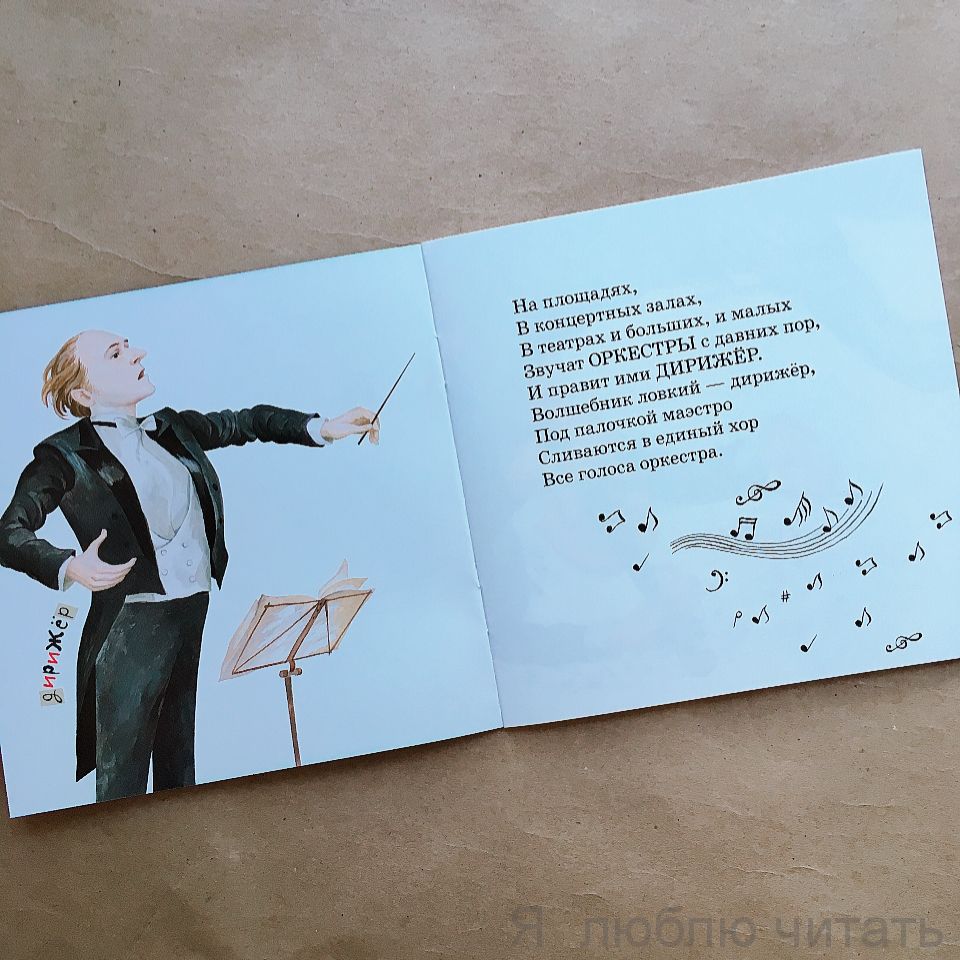 дирижёр
На площадях,
В концертных залах,
В театрах и больших, и малых
Звучат ОРКЕСТРЫ с давних пор,
И правит ими ДИРИЖЁР.
Волшебник ловкий — дирижёр,
Под палочкой маэстро
Сливаются в единый хор
Все голоса оркестра.
Я люблю читать